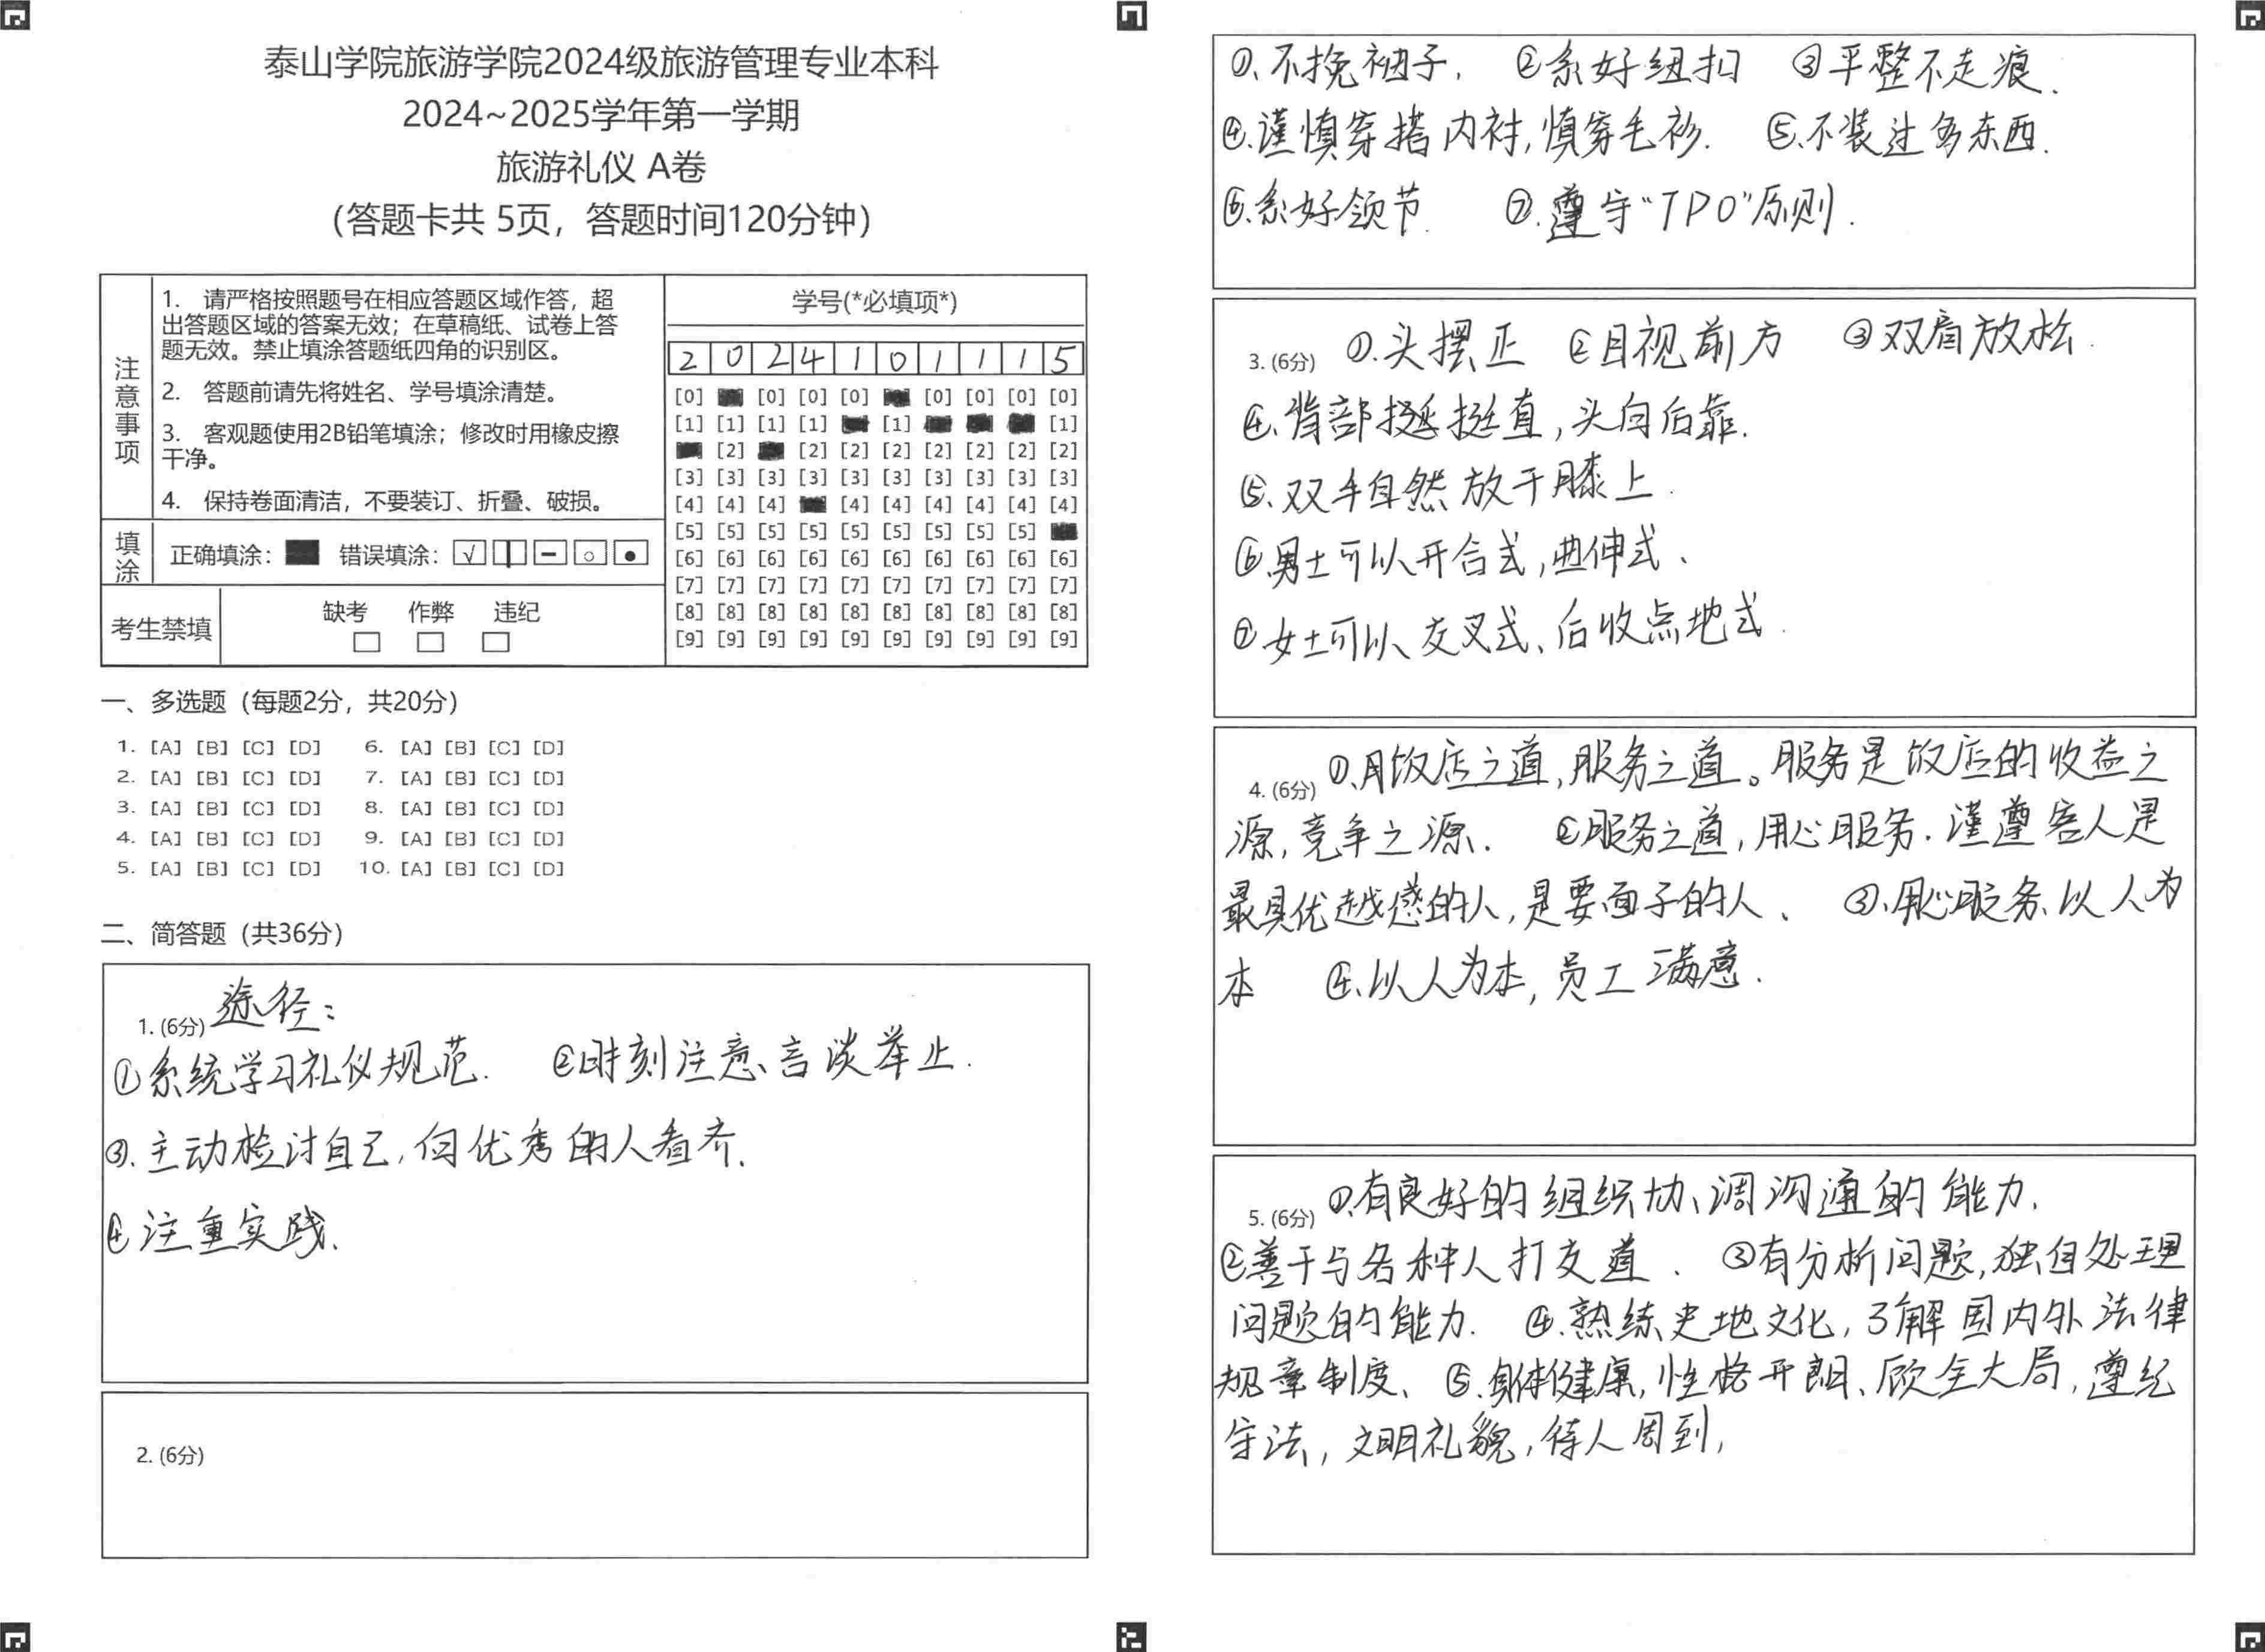 泰山学院旅游学院2024级旅游管理专业本科
2024~2025学年第一学期
旅游礼仪 A卷
（答题卡共 5页，答题时间120分钟）
注意事项
1. 请严格按照题号在相应答题区域作答，超
出答题区域的答案无效；在草稿纸、试卷上答
题无效。禁止填涂答题纸四角的识别区。
2. 答题前请先将姓名、学号填涂清楚。
3. 客观题使用2B铅笔填涂；修改时用橡皮擦
干净。
4. 保持卷面清洁，不要装订、折叠、破损。
填涂 正确填涂： 错误填涂：
考生禁填 缺考 作弊 违纪
学号(*必填项*)
2 0 2 4 1 0 1 1 1 5
[0] [0] [0] [0] [0] [0] [0] [0]
[1] [1] [1] [1] [1] [1]
[2] [2] [2] [2] [2] [2] [2] [2]
[3] [3] [3] [3] [3] [3] [3] [3] [3] [3]
[4] [4] [4] [4] [4] [4] [4] [4] [4]
[5] [5] [5] [5] [5] [5] [5] [5] [5]
[6] [6] [6] [6] [6] [6] [6] [6] [6] [6]
[7] [7] [7] [7] [7] [7] [7] [7] [7] [7]
[8] [8] [8] [8] [8] [8] [8] [8] [8] [8]
[9] [9] [9] [9] [9] [9] [9] [9] [9] [9]
一、多选题（每题2分，共20分）
1. [A] [B] [C] [D] 6. [A] [B] [C] [D]
2. [A] [B] [C] [D] 7. [A] [B] [C] [D]
3. [A] [B] [C] [D] 8. [A] [B] [C] [D]
4. [A] [B] [C] [D] 9. [A] [B] [C] [D]
5. [A] [B] [C] [D] 10. [A] [B] [C] [D]
二、简答题（共36分）
1. (6分) 途径：
①系统学习礼仪规范. ②时刻注意言谈举止.
③.主动检讨自己,向优秀的人看齐.
④注重实践.
2. (6分)
①.不挽袖子. ②系好纽扣 ③平整不走痕.
④.谨慎穿搭内衬,慎穿毛衫. ⑤.不装过多东西.
⑥.系好领节. ⑦.遵守“TPO”原则.
3. (6分) ①.头摆正 ②目视前方 ③双肩放松.
④.背部挺直,头向后靠.
⑤.双手自然放于膝上.
⑥.男士可以开合式,曲伸式、
⑦女士可以交叉式、后收点地式.
4. (6分) ①.用饭店之道,服务之道。服务是饭店的收益之
源,竞争之源. ②服务之道,用心服务.谨遵客人是
最具优越感的人,是要面子的人、 ③.用心服务、以人为
本 ④.以人为本,员工满意.
5. (6分) ①.有良好的组织协调沟通的能力.
②善于与各种人打交道. ③有分析问题,独自处理
问题的能力. ④.熟练史地文化,了解国内外法律
规章制度、 ⑤.身体健康,性格开朗、顾全大局,遵纪
守法,文明礼貌,待人周到,